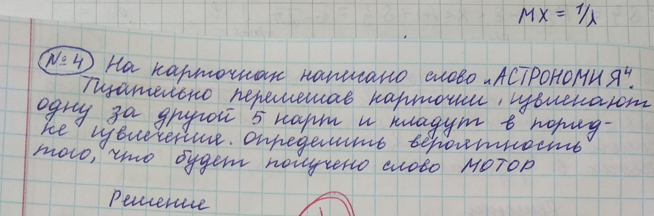 MX = 1/λ
№4 На карточках написано слово „АСТРОНОМИЯ".
Тщательно перемешав карточки, извлекают
одну за другой 5 карт и кладут в поряд-
ке извлечения. Определить вероятность
того, что будет получено слово МОТОР
Решение